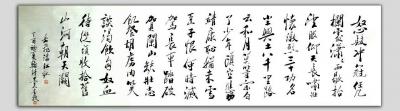 怒髮衝冠憑
欄處瀟雨歇抬
望眼仰天長嘯壯
懷激烈三十功名
塵與土八千里路
雲和月莫等閒白
了少年頭空悲切
靖康恥猶未雪
臣子恨何時滅
駕長車踏破
賀蘭山缺壯志
飢餐胡虜肉笑
談渴飲匈奴血
待從頭收拾舊
山河朝天闕
岳飛滿江紅